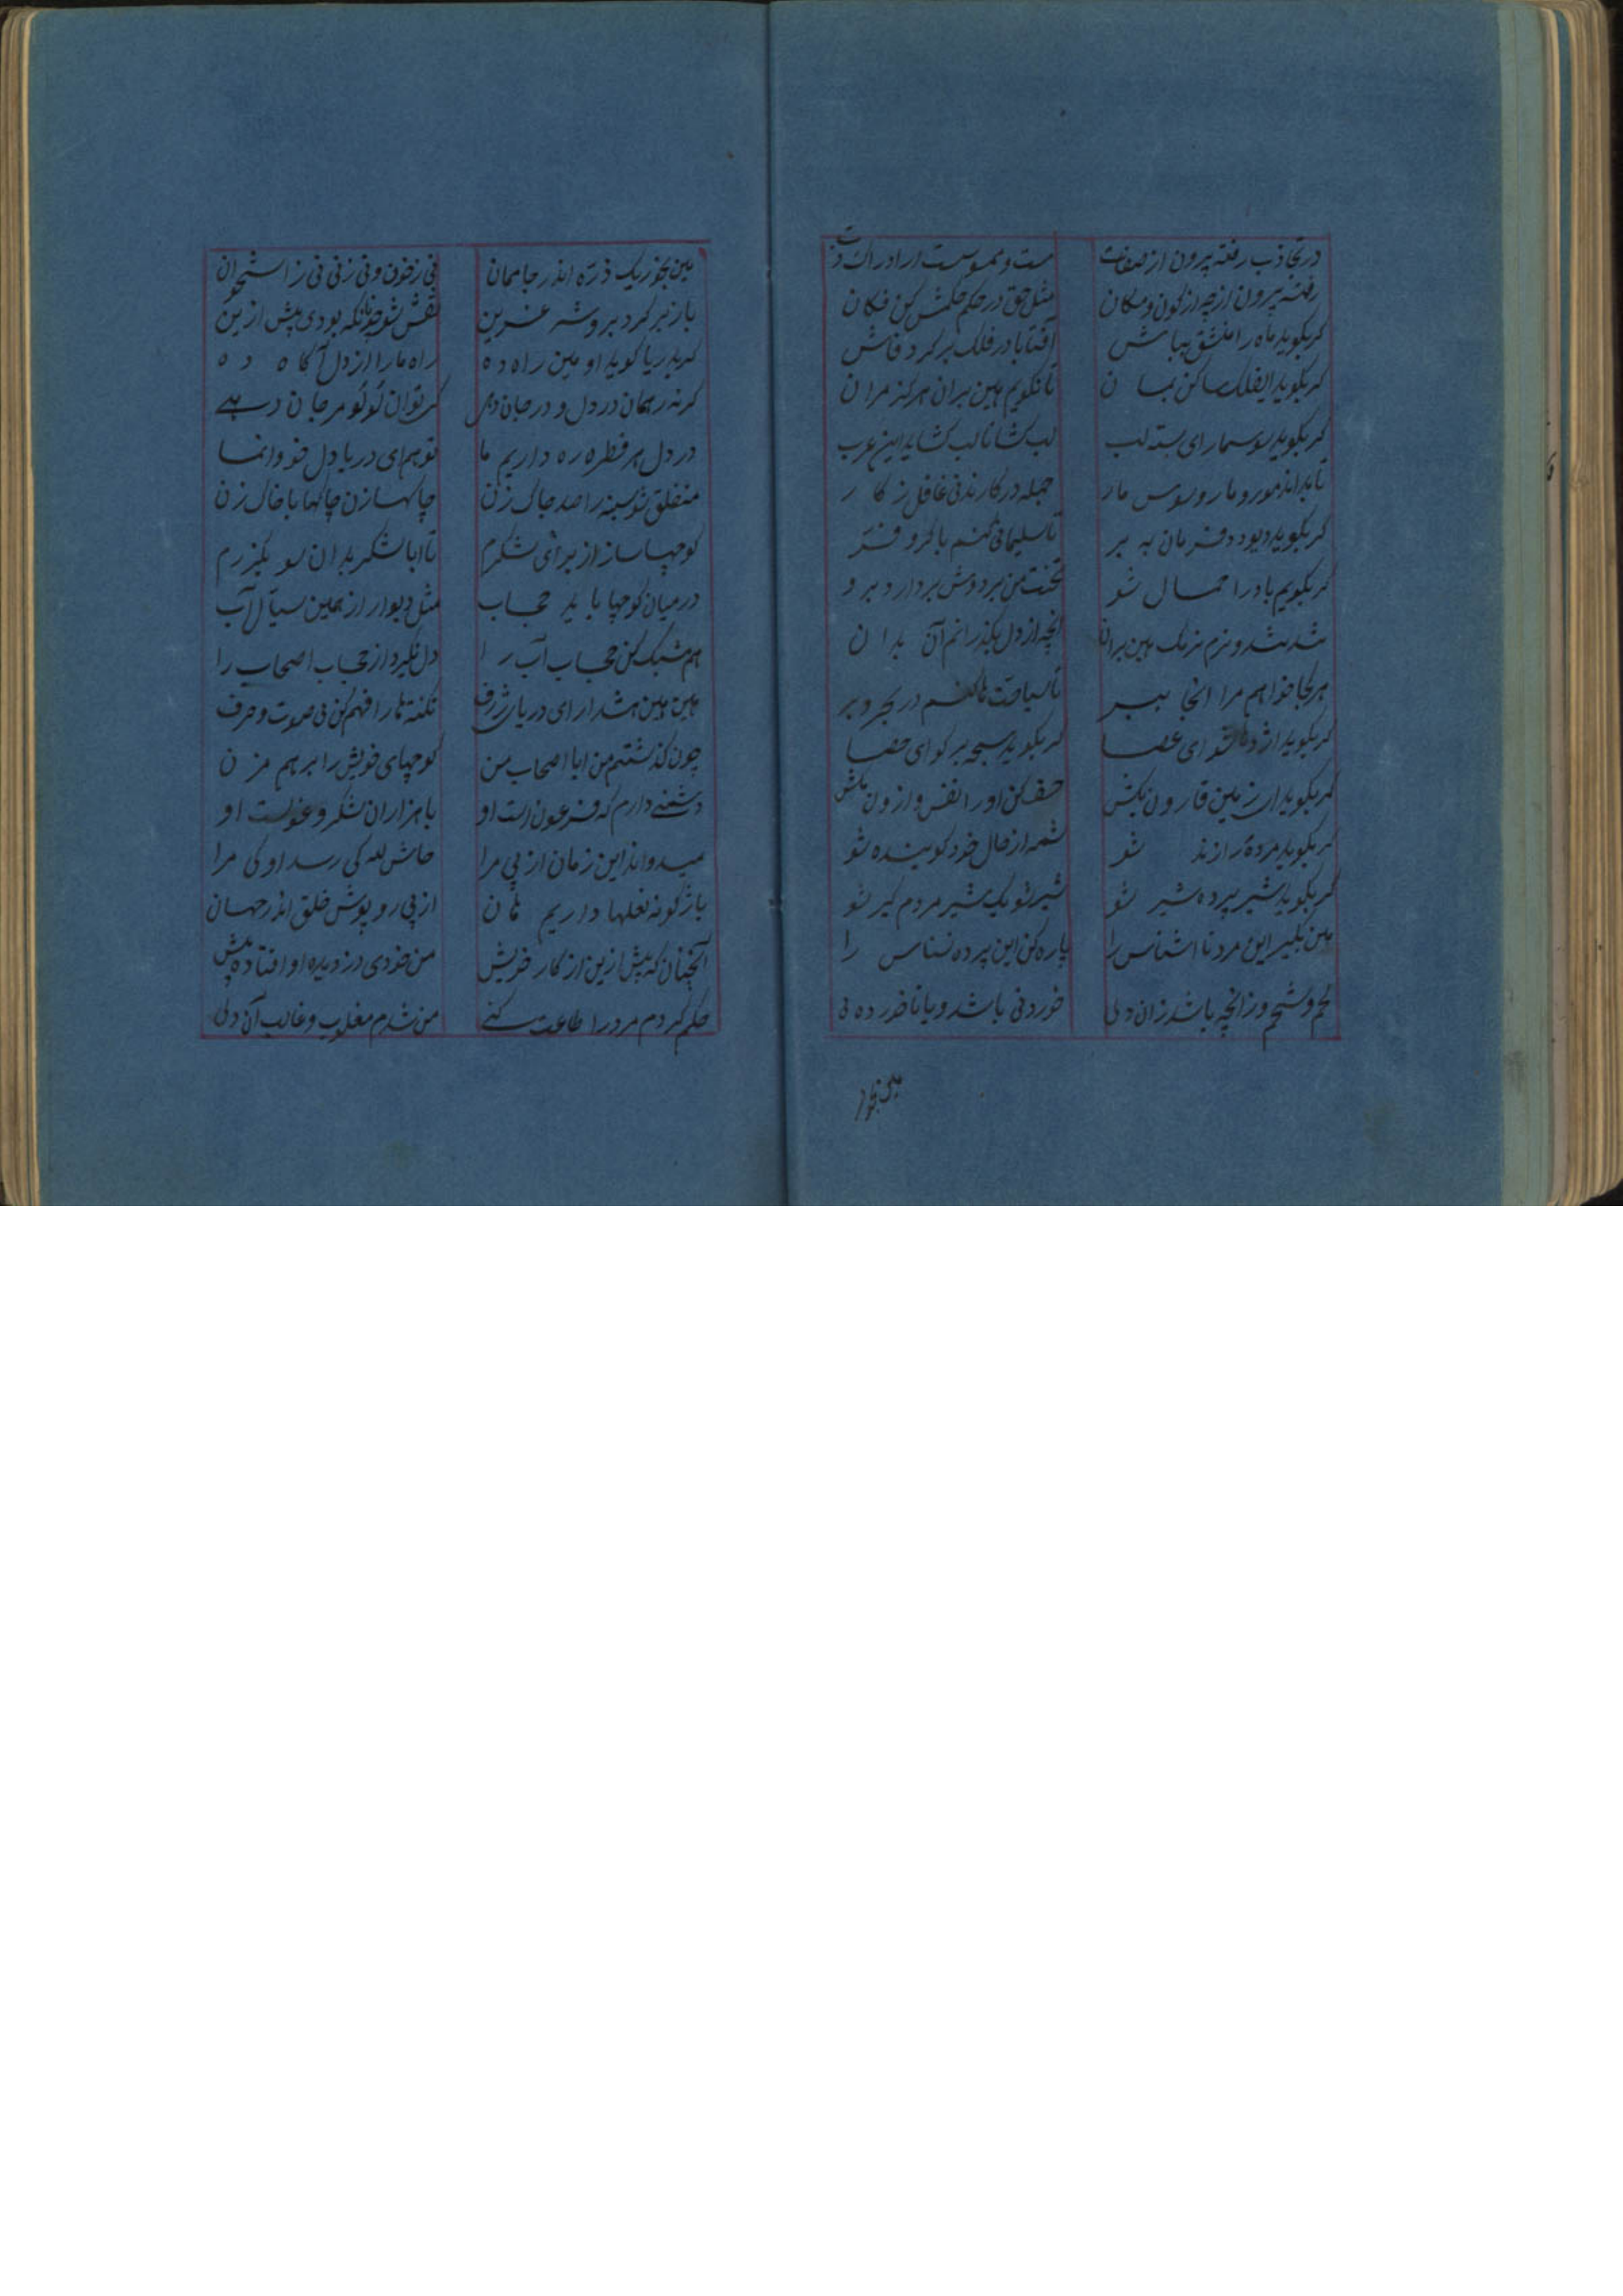 در تجاذب رفته بیرون از صفات مست و ممسوست در ادراک ذات
رفته بیرون از چه از کون و مکان مثل حق در حکم حکمش کن فکان
کر بکوید ماه را منشق بباش آفتابا در فلک بر کرد فاش
کر بکوید ایفلک ساکن بمان تا نکویم هین بران هرکز مران
کر بکوید سوسمار ای بسته لب لب کشا تا لب کشاید این عرب
تا بداند مور و مار و سوسمار جمله در کارند نی غافل ز کار
کر بکوید دیو دد فرمان به بر تا سلیمانی کنم با کر و فر
کر بکویم باد را حمال شو تخت من بر دوش بردار و برو
تند تند و نرم نرمک هین بران آنچه از دل بکذرانم آن بدان
هر کجا خواهم مرا آنجا ببر تا سیاحتها کنم در بحر و بر
کر بکوید اژدها شو ای عصا کر بکوید سبحه بر کو ای حصا
کر بکوید ای زمین قارون بکش خسف کن او را نفس و ازون مکش
کر بکوید مرده را زنده شو شمه از حال خود کوینده شو
کر بکوید شیر پرده شیر شو شیر شو یک شیر مردم کیر شو
هین بکیر این مرد نا اشناس را پاره کن این پرده نسناس را
لحم و شحم و ز آنچه باشد زان دنی خوردنی باشد و یا ناخوردنی
هین بخور
هین بخور یک ذره اندر جا ممان نی ز خون و نی ز نی نی ز استخوان
باز بر کرد برو شیر عرین نقش شو چونانکه بودی پیش ازین
کر بدریا کوید او هین راه ده راه ما را از دل آکاه ده
کر نه رهمان در دل و در جان دهی کی توان لؤلؤ مرجان دهی
در دل هر قطره ره داریم ما تو هم ای دریا دل خود وانما
منفلق شو سینه را صد چاک زن چاکها زن چاکها با خاک زن
کوچها ساز از برای لشکرم تا ابا لشکر بدان سو بکذرم
در میان کوچها باید حجاب مثل دیوار از همین سیال آب
هم مشبک کن حجاب آب را دل نکیرد از حجاب اصحاب را
هین و هین هشدار ای دریای ژرف نکته ها را فهم کن بی صوت و حرف
چون کذشتم من ابا اصحاب من کوچهای خویش را بر هم مزن
دشمنی دارم که فرعونست او با هزاران لشکر و عونست او
میدواند این زمان از پی مرا حاش لله کی رسد او کی مرا
باژکونه نعلها داریم مان از پی روپوش خلق اندر جهان
آنچنان که پیش ازین از کار خویش من خودی در دیده او افتاده پیش
حکم کردم مرد را طاعت کنی من شدم مغلوب و غالب آن دنی